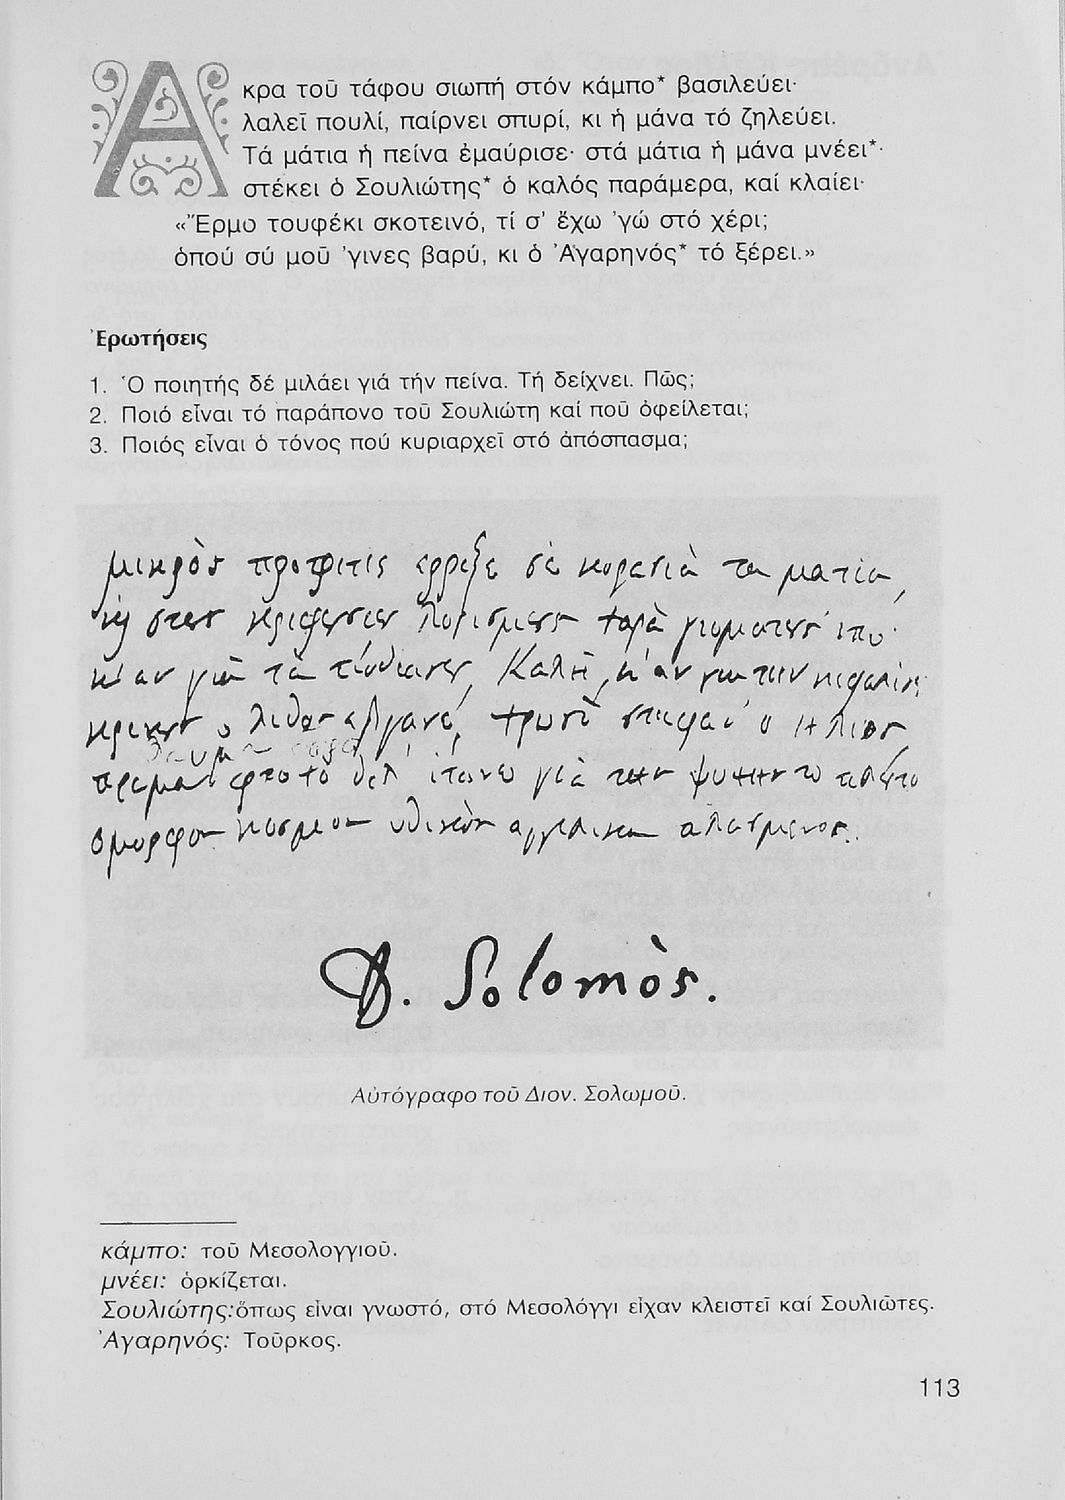 Ἄκρα τοῦ τάφου σιωπή στόν κάμπο* βασιλεύει·
λαλεῖ πουλί, παίρνει σπυρί, κι ἡ μάνα τό ζηλεύει.
Τά μάτια ἡ πείνα ἐμαύρισε· στά μάτια ἡ μάνα μνέει*·
στέκει ὁ Σουλιώτης* ὁ καλός παράμερα, καί κλαίει·
«Ἔρμο τουφέκι σκοτεινό, τί σ' ἔχω 'γώ στό χέρι;
ὁπού σύ μοῦ 'γινες βαρύ, κι ὁ Ἀγαρηνός* τό ξέρει.»
Ἐρωτήσεις
1. Ὁ ποιητής δέ μιλάει γιά τήν πείνα. Τή δείχνει. Πῶς;
2. Ποιό εἶναι τό παράπονο τοῦ Σουλιώτη καί ποῦ ὀφείλεται;
3. Ποιός εἶναι ὁ τόνος πού κυριαρχεῖ στό ἀπόσπασμα;
μικρὸσ προφιτις ερριξε σὲ κορασιὰ τα ματια,
κ' αν για τὰ Καλὴ, κ' αν για των
ο τρυσὶ ο Ηλιοσ
φοσ τὸ δεν γιὰ
ομορφοσ κοσμοσ ηθικὸσ αγγελικα πλασμενοσ.
D. Solomòs.
Αὐτόγραφο τοῦ Διον. Σολωμοῦ.
κάμπο: τοῦ Μεσολογγιοῦ.
μνέει: ὁρκίζεται.
Σουλιώτης: ὅπως εἶναι γνωστό, στό Μεσολόγγι εἶχαν κλειστεῖ καί Σουλιῶτες.
Ἀγαρηνός: Τοῦρκος.
113